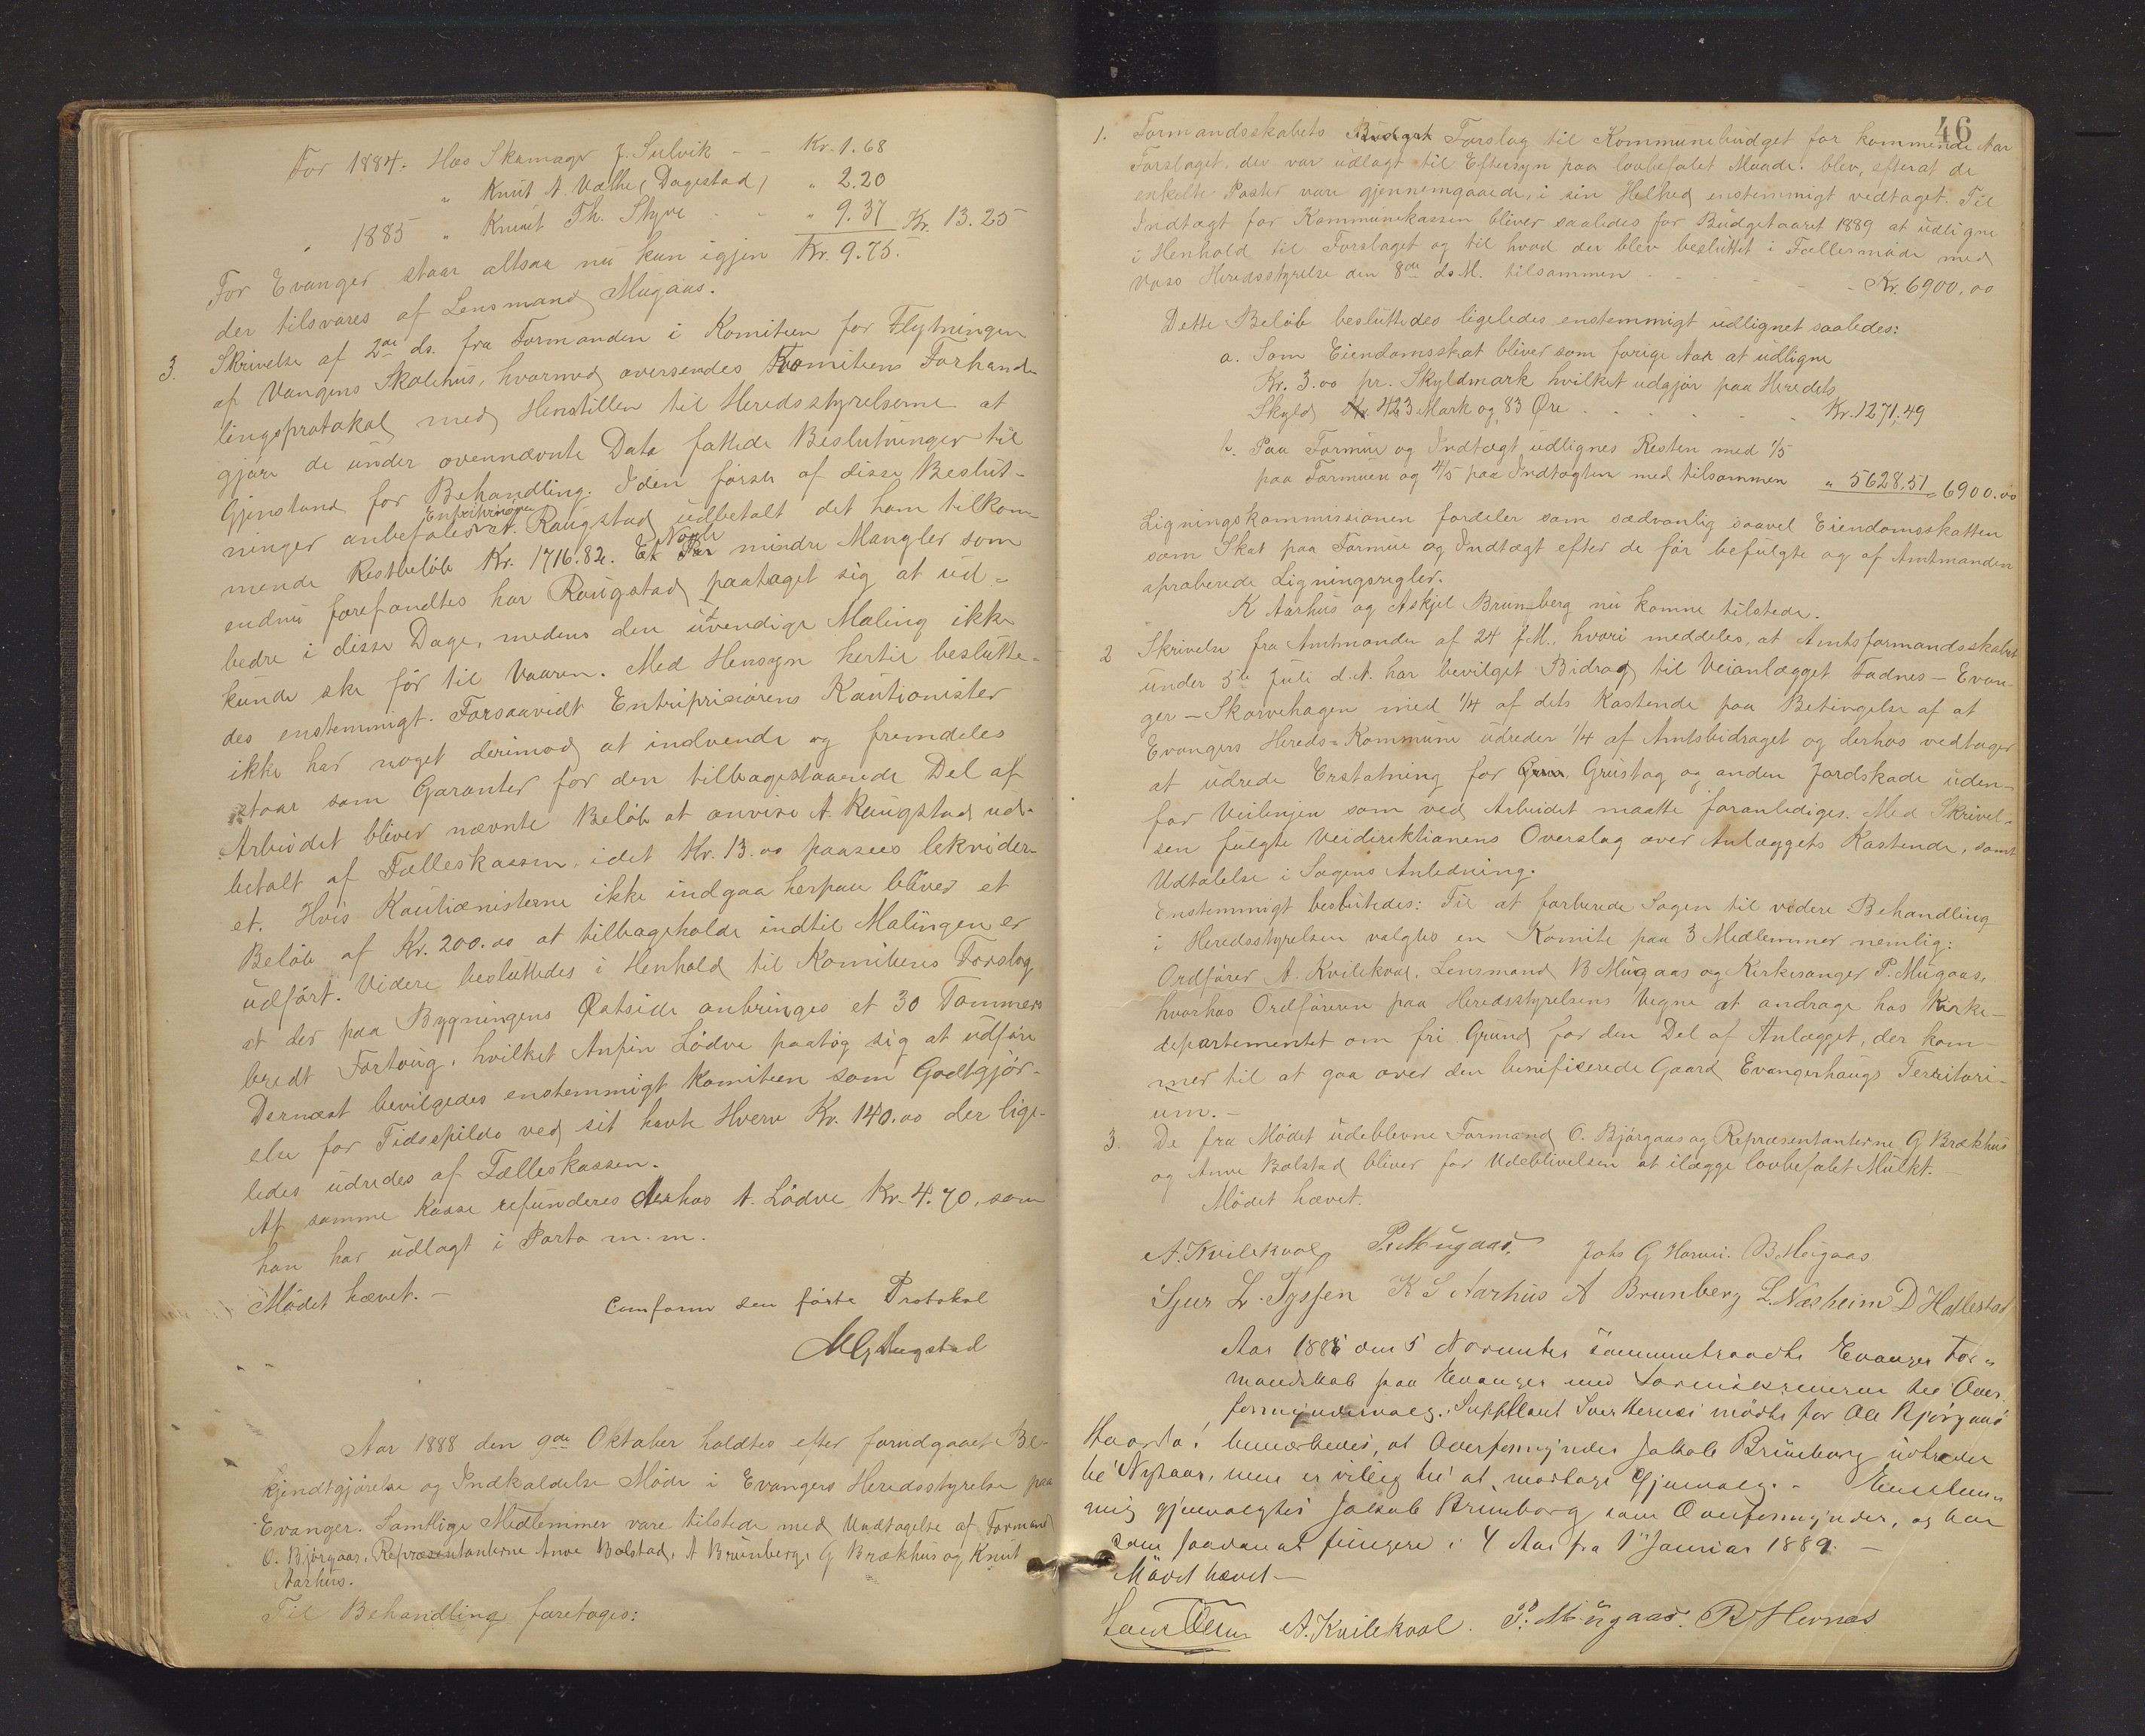 For 1884. Hos Skomager J. Sulvik - - Kr. 1.68
" Knut A. Væthe (Dagestad) " 2.20
" 1885 " Knut Th. Styve - - " 9.37 Kr. 13.25
For Evanger staar altsaa nu kun igjen Kr. 9.75.
der tilsvares af Lensmand Mugaas.
3. Skrivelse af 2de ds. fra Formanden i Komiteen for Flytningen
af Vangens Skolehus, hvormed oversendes Komiteens Forhand-
lingsprotokol med Henstillen til Heredsstyrelserne at
gjøre de under ovennævnte Dato fattede Beslutninger til
Gjenstand for Behandling. I den første af disse Beslut-
ninger anbefales Entreprinøren A. Raugstad udbetalt det ham tilkom-
mende Restbeløb Kr. 1716.82. Et Par Nogle mindre Mangler som
endnu forefandtes har Raugstad paataget sig at ud-
bedre i disse Dage, medens den udvendige Maling ikke
kunde ske før til Vaaren. Med Hensyn hertil beslutte-
des enstemmigt. Forsaavidt Entriprisørens Kautionister
ikke har noget derimod at indvende og fremdeles
staar som Garanter for den tilbagestaaende Del af
Arbeidet bliver nævnte Beløb at anvise A. Raugstad ud-
betalt af Fælleskassen, idet Kr. 13.00 paasees lekvider-
et. Hvis Kautionisterne ikke indgaa herpaa bliver et
Beløb af Kr. 200.00 at tilbageholde indtil Malingen er
udført. Videre besluttedes i Henhold til Komiteens Forslag
at der paa Bygningens Østside anbringes et 30 Tommers
bredt Fortoug, hvilket Anfin Lødve paatog sig at udføre
Dernæst bevilgedes enstemmigt Komiteen som Godtgjør-
else for Tidsspilde ved sit havte Hverv Kr. 140.00 der lige-
ledes udredes af Fælleskassen.
Af samme Kasse refunderes derhos A. Lødve Kr. 4.70, som
han har udlagt i Porto m.m.
Mødet hævet. -
Conform den førte Protokol
Aar 1888 den 9de Oktober holdtes efter forudgaaet Be-
kjendtgjørelse og Indkaldelse Møde i Evangers Heredsstyrelse paa
Evanger. Samtlige Medlemmer vare tilstede med Undtagelse af Formand
O. Bjørgaas, Repræsentanterne Anve Bolstad, A Brunberg, G Brækhus og Knut
Aarhus.
Til Behandling foretoges:
46
1. Formandsskabets Budget Forslag til Kommunebudget for kommende Aar
Forslaget, der var udlagt til Eftersyn paa lovbefalet Maade, blev, efterat de
enkelte Poster vare gjennemgaaede, i sin Helhed enstemmigt vedtaget. Til
Indtægt for Kommunekassen bliver saaledes for Budgetaaret 1889 at udligne
i Henhold til Forslaget og til hvad der blev besluttet i Fællesmøde med
Voss Heredsstyrelse den 8de ds. M. tilsammen - - - - Kr. 6900,00
Dette Beløb besluttedes ligeledes enstemmigt udlignet saaledes:
a. Som Eiendomsskat bliver som forige Aar at udligne
Kr. 3.00 pr. Skyldmark hvilket udgjør paa Heredets
Skyld Kr. 423 Mark og 83 Øre - - - - Kr. 1271,49
b. Paa Formue og Indtægt udlignes Resten med 1/5
paa Formuen og 4/5 paa Indtægten med tilsammen " 5628,51 = 6900.00
Ligningskommissionen fordeler som sædvanlig saavel Eiendomsskatten
som Skat paa Formue og Indtægt efter de før befulgte og af Amtmanden
aproberede Ligningsregler.
K Aarhus og Askjel Brunberg nu komne tilstede.
2 Skrivelse fra Amtmanden af 24 f.M., hvori meddeles, at Amtsformandsskabet
under 5te Juli d.A. har bevilget Bidrag til Veianlægget Fadnes - Evan-
ger - Skorvehagen med 1/4 af dets Kostende paa Betingelse af at
Evangers Hereds-Kommune udreder 1/4 af Amtsbidraget og derhos vedtager
at udrede Erstatning for Grus, Grustag og anden Jordskade uden-
for Veilinjen som ved Arbeidet maatte foranlediges. Med Skrivel-
sen fulgte Veidirektionens Overslag over Anlæggets Kostende, samt
Udtalelse i Sagens Anledning.
Enstemmigt besluttedes: Til at forberede Sagen til videre Behandling
i Heredsstyrelsen valgtes en Komite paa 3 Medlemmer nemlig:
Ordfører A. Kvilekval, Lensmand B Mugaas og Kirkesanger P. Mugaas,
hvorhos Ordføreren paa Heredsstyrelsens Vegne at andrage hos Kirke-
departementet om fri Grund for den Del af Anlægget, der kom-
mer til at gaa over den benificerede Gaard Evangerhaugs Territori-
um. -
3. De fra Mødet udeblevne Formand O. Bjørgaas og Repræsentanterne G Brækhus
og Anve Bolstad bliver for Udeblivelsen at ilægge lovbefalet Mulkt. -
Mødet hævet.
A. Kvilekval P. Mugaas. Johs G Horvei. B. Mugaas
Sjur L. Tyssen K S Aarhus A Brunberg L. Næsheim D Hallestad
Aar 1888 den 5 November sammentraadte Evanger For-
mandskab paa Evanger med Sorenskriveren til Over
formyndervalg. Supplant mødte for Ole Bjørgaas
bemærkedes, at Overformynder Jakob Brunborg udtræder
til Nytaar, men er villig til at modtage Gjenvalg. - Enstem-
mig gjenvalgtes Jakob Brunborg som Overformynder, og har
som saadan at fungere i 4 Aar fra 1 Januar 1889. -
Mødet hævet -
A. Kvilekval. P. Mugaas. B Hernæs